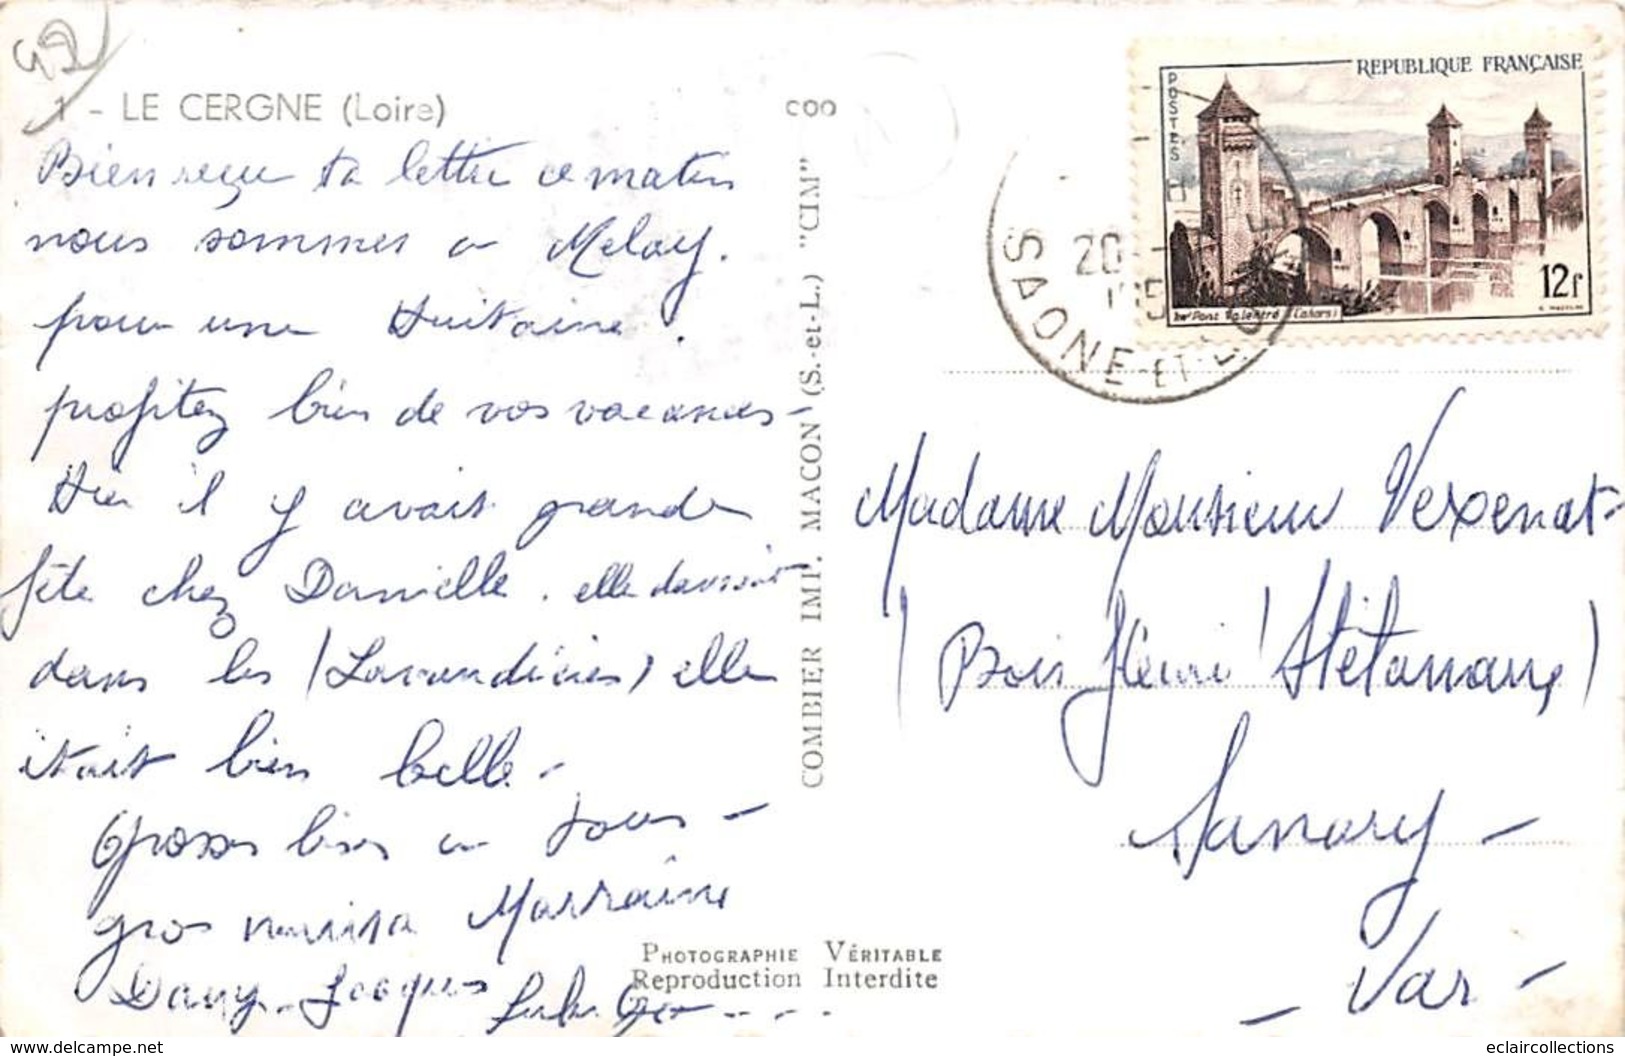 42
1 - LE CERGNE (Loire)
Bien reçu ta lettre ce matin
nous sommes a Melay.
pour une Huitaine.
profitez bien de vos vacances -
Hier il y avait grande
fête chez Danielle. elle dansait
dans les (Lavandières) elle
était bien belle -
Grosses bises a tous -
gros Marraine
Dany - Jacques
COO
COMBIER IMP. MACON (S.-et-L.) "CIM"
PHOTOGRAPHIE VÉRITABLE
Reproduction Interdite
REPUBLIQUE FRANÇAISE
POSTES
12f
Le Pont Valentré (Cahors)
20
SAONE-ET-L
Madame Monsieur Vexenat -
(Bois Henri
Sanary -
- Var -
www.delcampe.net
eclaircollections